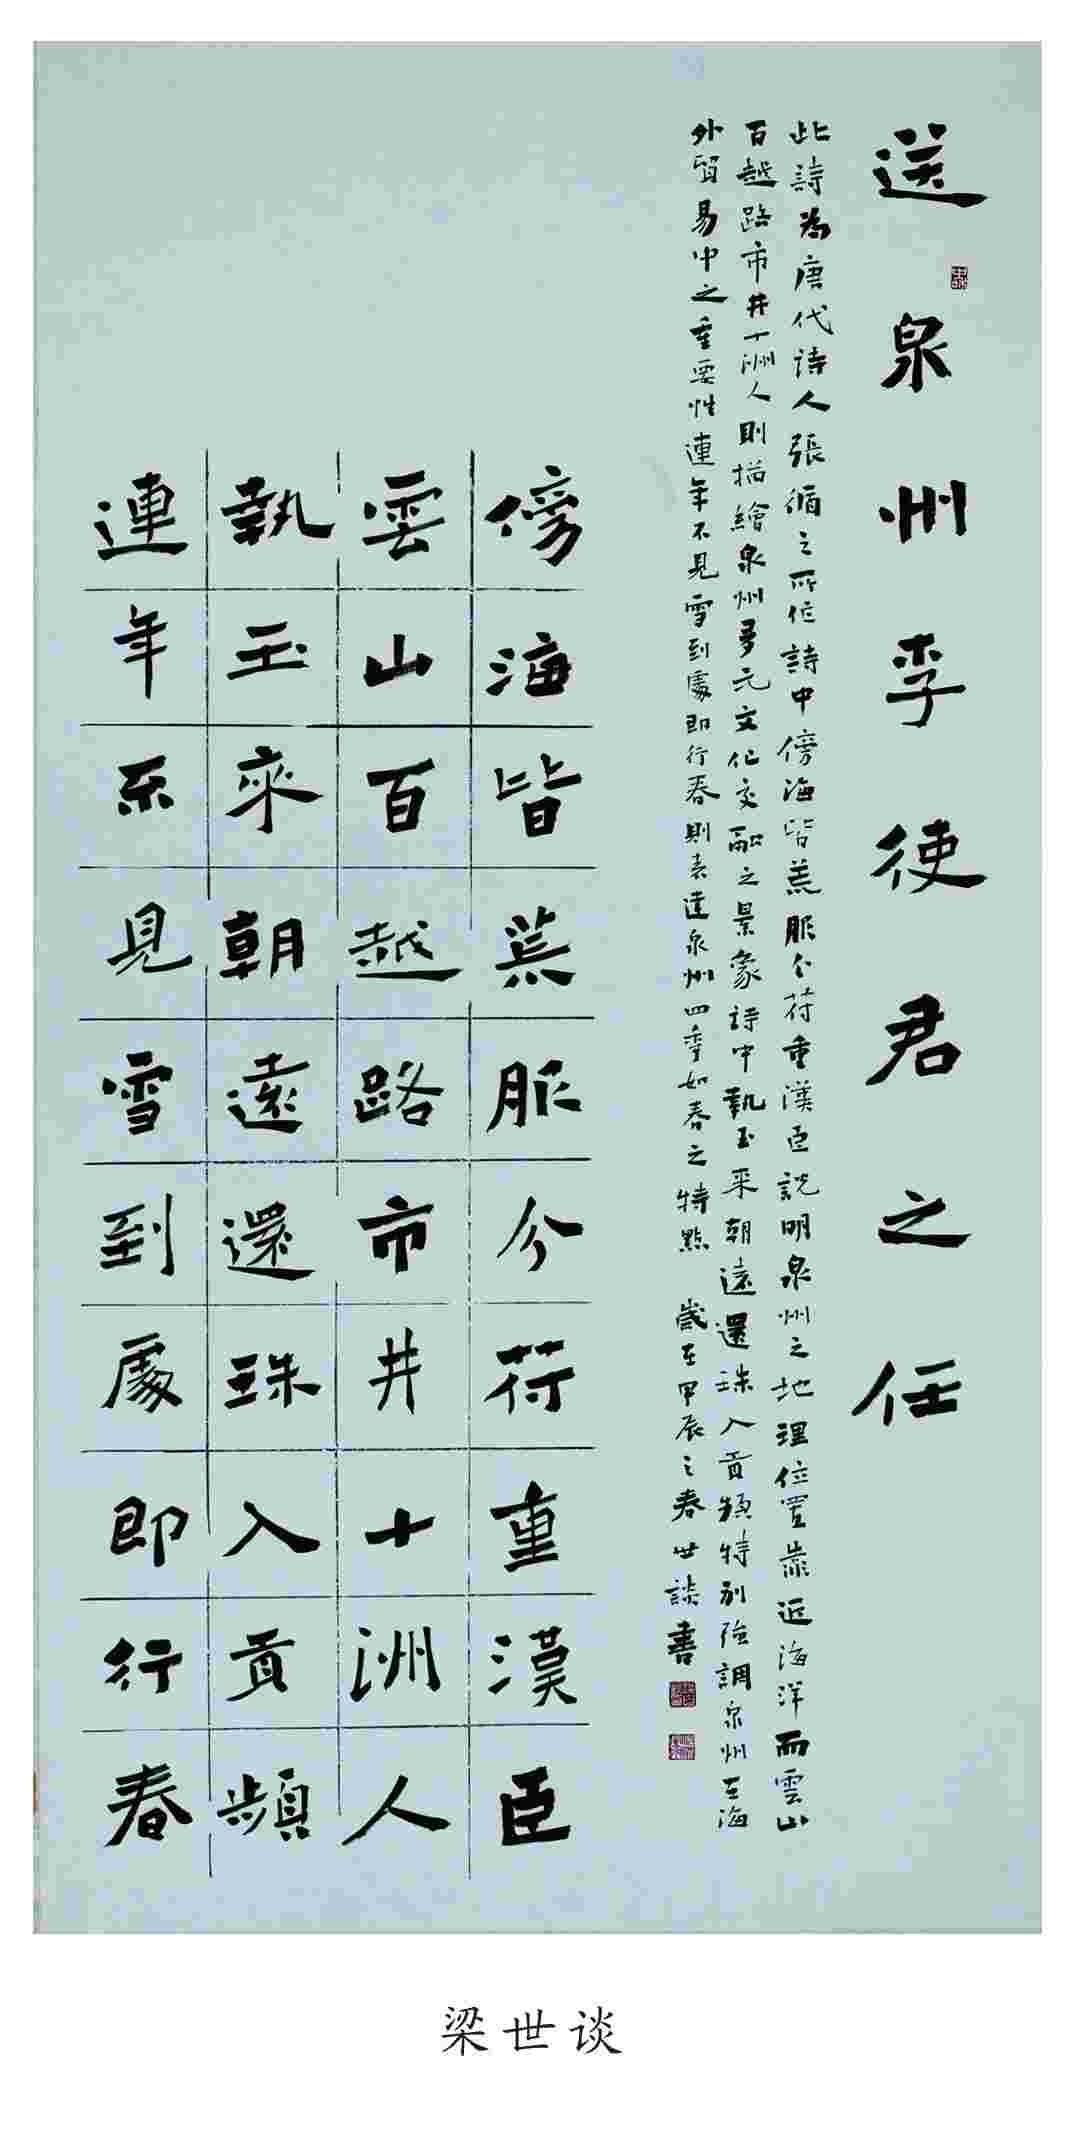 送泉州李使君之任
此詩為唐代诗人張循之所作詩中傍海皆荒服分符重漢臣説明泉州之地理位置靠近海洋而雲山
百越路市井十洲人則描繪泉州多元文化交融之景象詩中執玉來朝遠還珠入貢頻特別強調泉州在海
外貿易中之重要性連年不見雪到處即行春則表達泉州四季如春之特點 歲在甲辰之春世談書
傍海皆荒服分荷重漢臣
雲山百越路市井十洲人
執玉來朝遠還珠入貢頻
連年不見雪到處即行春
梁世谈